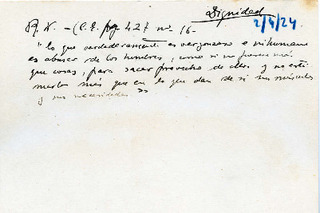 Dignidad
2/5/24
R. N. - (C.E. pg 427 nº 16-
"Lo que verdaderamente es vergonzoso e inhumano
es abusar de los hombres, como si no fuesen más
que cosas, para sacar provecho de ellos, y no esti-
marlos más que en lo que dan de sí sus músculos
y sus necesidades"